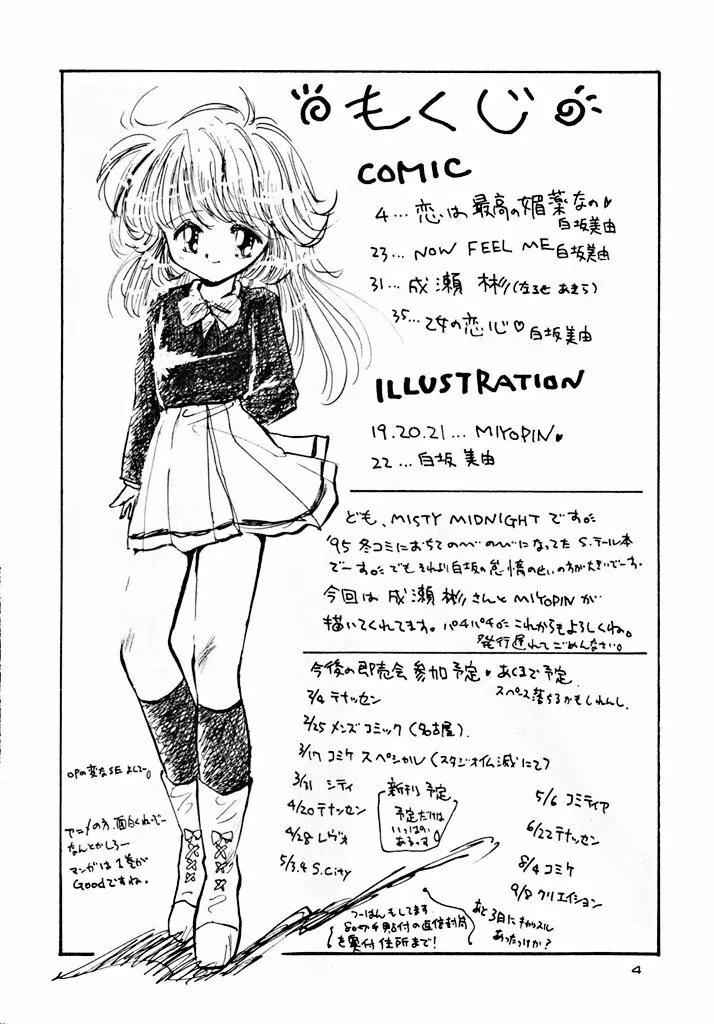 もくじ
COMIC
4…恋は最高の媚薬なの♥
白坂美由
23…NOW FEEL ME 白坂美由
31…成瀬 彬(なるせ あきら)
35…乙女の恋心♡白坂美由
ILLUSTRATION
19.20.21…MIYOPIN♥
22…白坂美由
ども、MISTY MIDNIGHTです。
'95冬コミにおちてのべのべになってたS.テール本
でーす。でもそれより白坂の怠惰のせいの方が大きいでーす。
今回は成瀬彬さんとMIYOPINが
描いてくれてます。パチパチ。これからもよろしくね。
発行遅れてごめんなさい。
今後の即売会参加予定♥あくまで予定
スペース落ちるかもしれんし.
3/4 テナッセン
2/25 メンズコミック(名古屋)
3/17 コミケスペシャル(スタジオイム滅にて)
3/31 シティ
4/20 テナッセン
4/28 レヴォ
5/3.4 S.City
新刊予定
予定だけは
いっぱい
あるっす
5/6 コミティア
6/22 テナッセン
8/4 コミケ
9/8 クリエイション
OPの変なSEよしてー。
アニメの方、面白くねーぞー
なんとかしろー
マンガは1巻が
Goodですね。
つーはんもしてます
80切手貼付の返信封筒
を奥付住所まで!
あと3日にキャッスル
あったっけか?
4